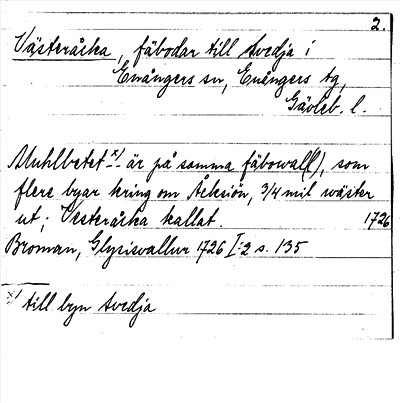 2.
Västeråcka, fäbodar till Svedja i
Enångers sn, Enångers tg,
Gävleb. l.
Muhlbetet x) är på samma fäbowal(l), som
flere byar kring om Åcksiön, 3/4 mil wäster
ut; Vesteråcka kallat. 1726
Broman, Glysisvallur 1726 I:2 s. 135
x) till byn Svedja